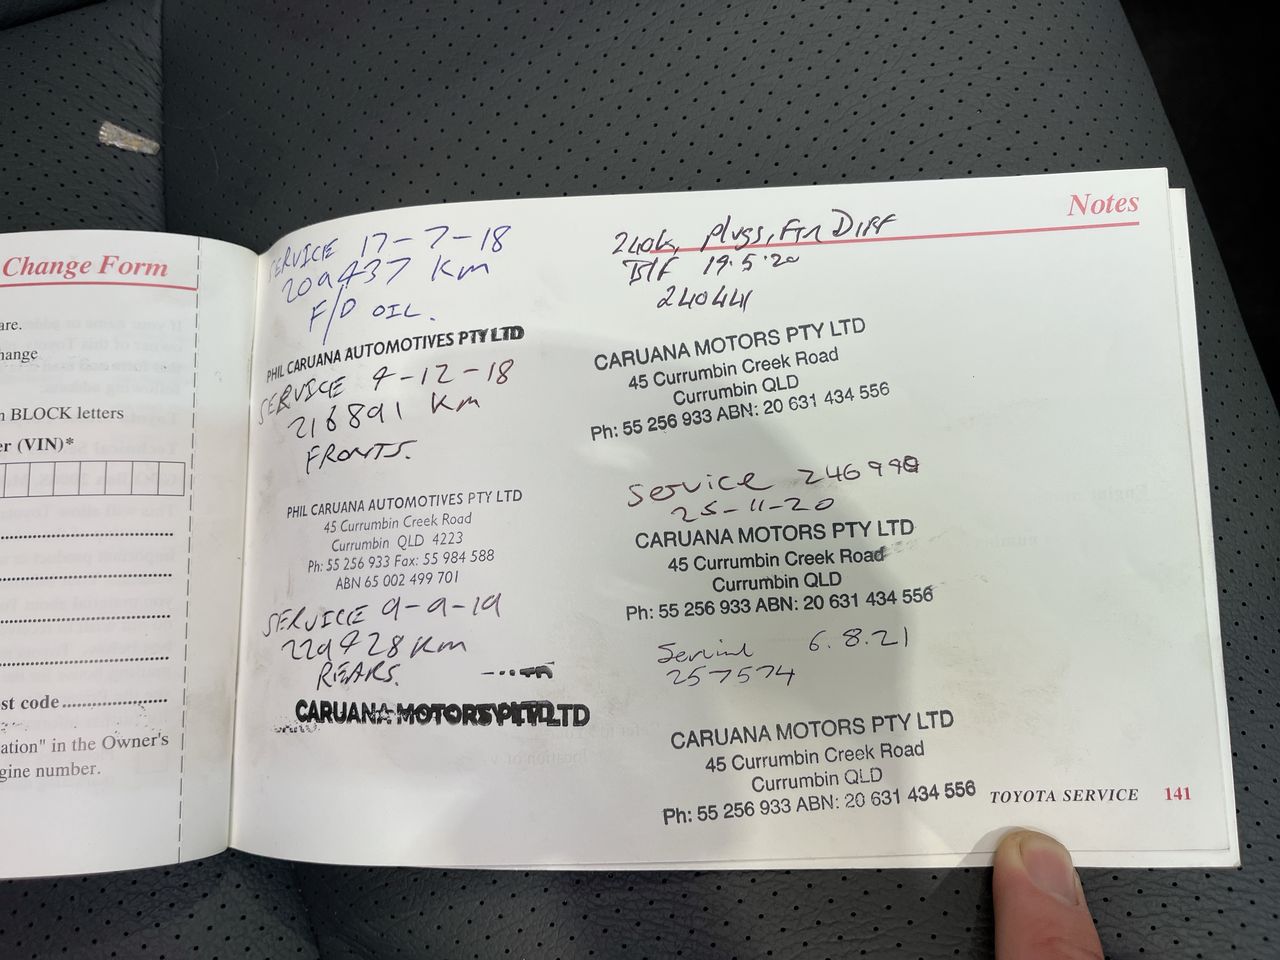 Change Form
are.
hange
n BLOCK letters
er (VIN)*
st code
ation" in the Owner's
gine number.
SERVICE 17-7-18
209437 KM
F/D OIL.
PHIL CARUANA AUTOMOTIVES PTY LTD
SERVICE 4-12-18
216891 KM
FRONTS.
PHIL CARUANA AUTOMOTIVES PTY LTD
45 Currumbin Creek Road
Currumbin QLD 4223
Ph: 55 256 933 Fax: 55 984 588
ABN 65 002 499 701
SERVICE 9-9-19
229428 KM
REARS.
CARUANA MOTORS PTY LTD
Notes
240k, plugs, Ftr Diff
B/F 19.5.20
240441
CARUANA MOTORS PTY LTD
45 Currumbin Creek Road
Currumbin QLD
Ph: 55 256 933 ABN: 20 631 434 556
Service 246990
25-11-20
CARUANA MOTORS PTY LTD
45 Currumbin Creek Road
Currumbin QLD
Ph: 55 256 933 ABN: 20 631 434 556
Service 6.8.21
257574
CARUANA MOTORS PTY LTD
45 Currumbin Creek Road
Currumbin QLD
Ph: 55 256 933 ABN: 20 631 434 556
TOYOTA SERVICE 141